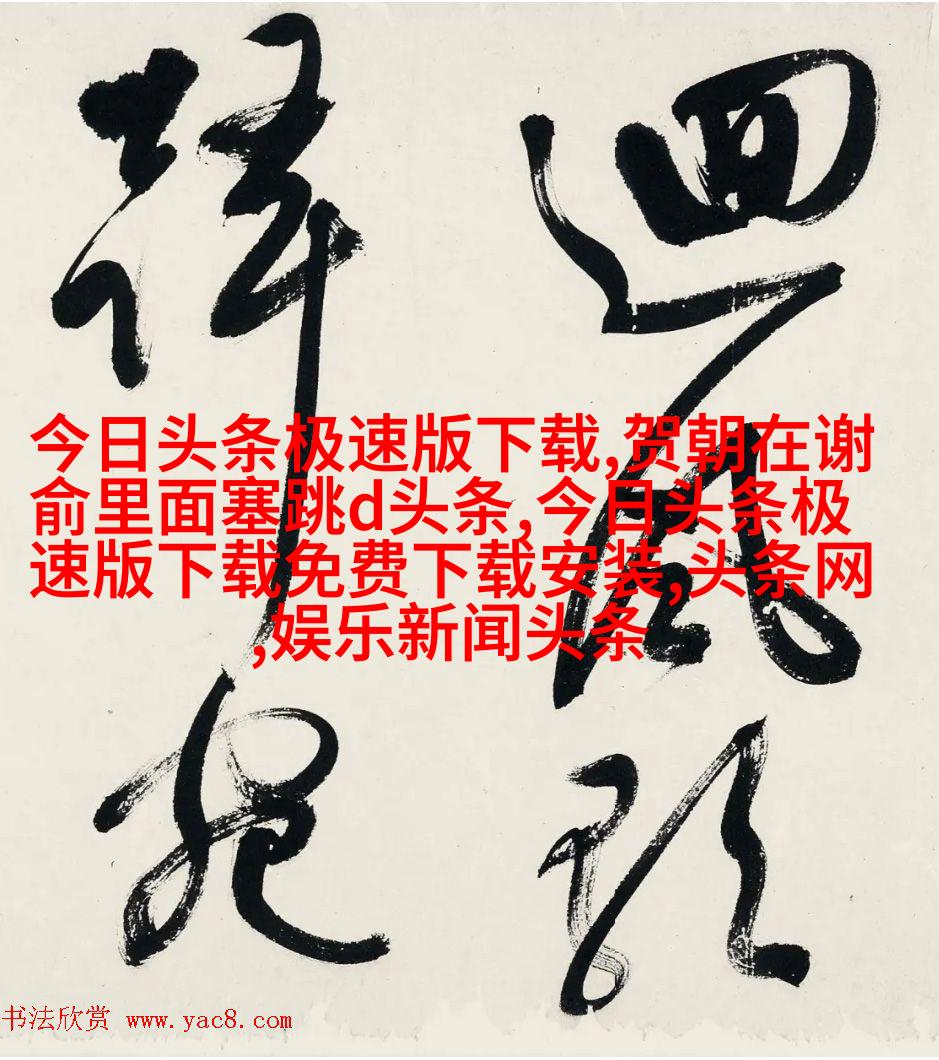 今日头条极速版下载,贺朝在谢
俞里面塞跳d头条,今日头条极
速版下载免费下载安装,头条网
,娱乐新闻头条
书法欣赏 www.yac8.com